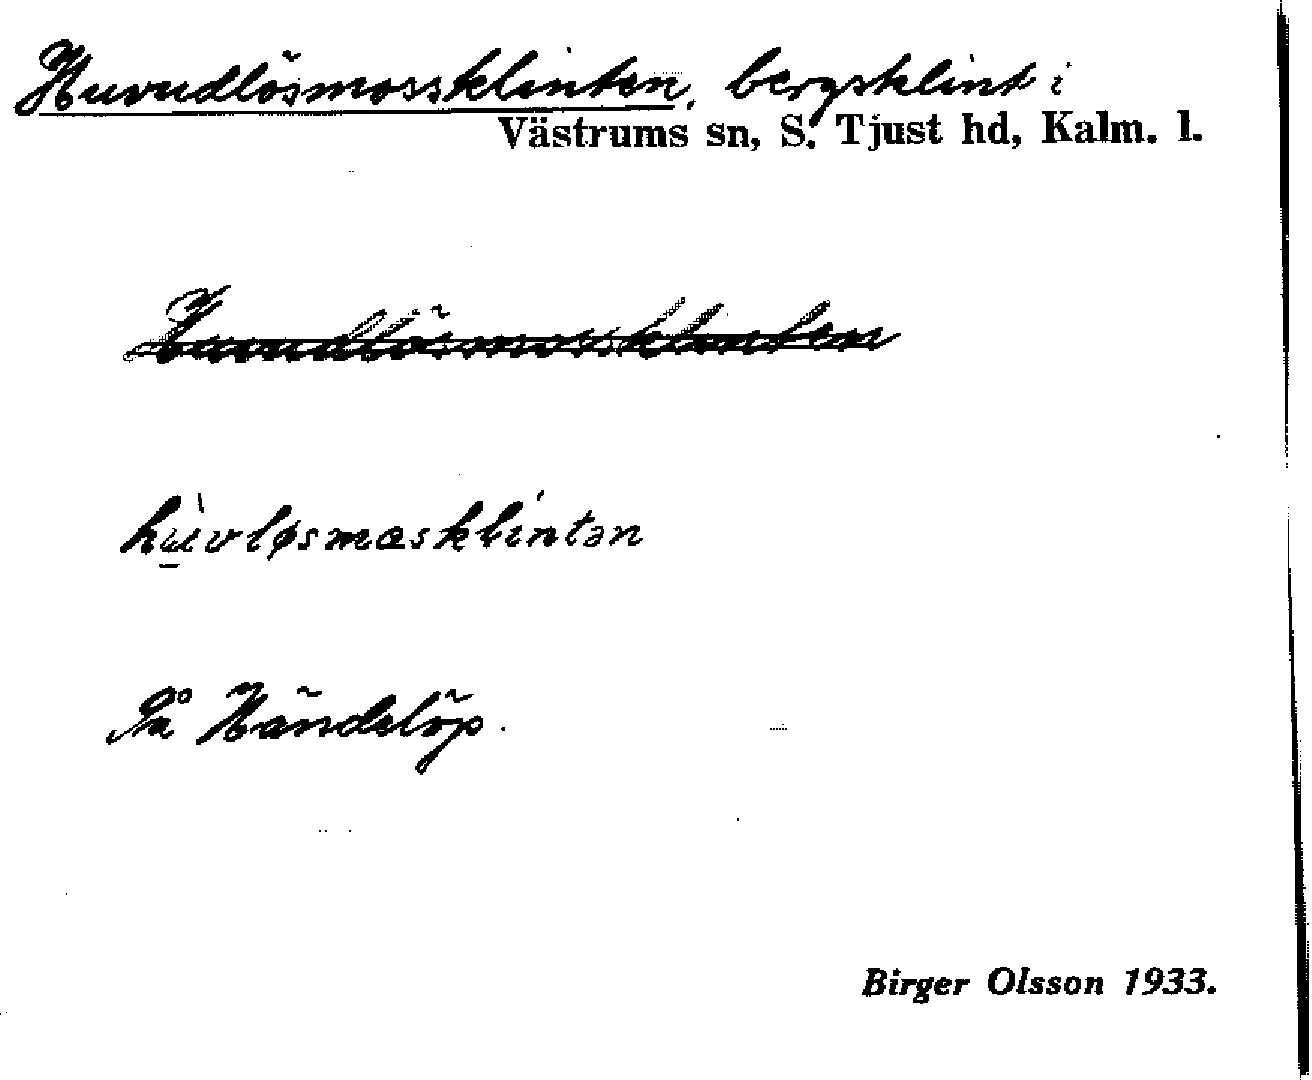 Huvudlösmossklinten, bergsklint i
Västrums sn, S. Tjust hd, Kalm. l.
Huvudlösmossklinten
hùvløsmɑsklíntən
På Händelöp.
Birger Olsson 1933.